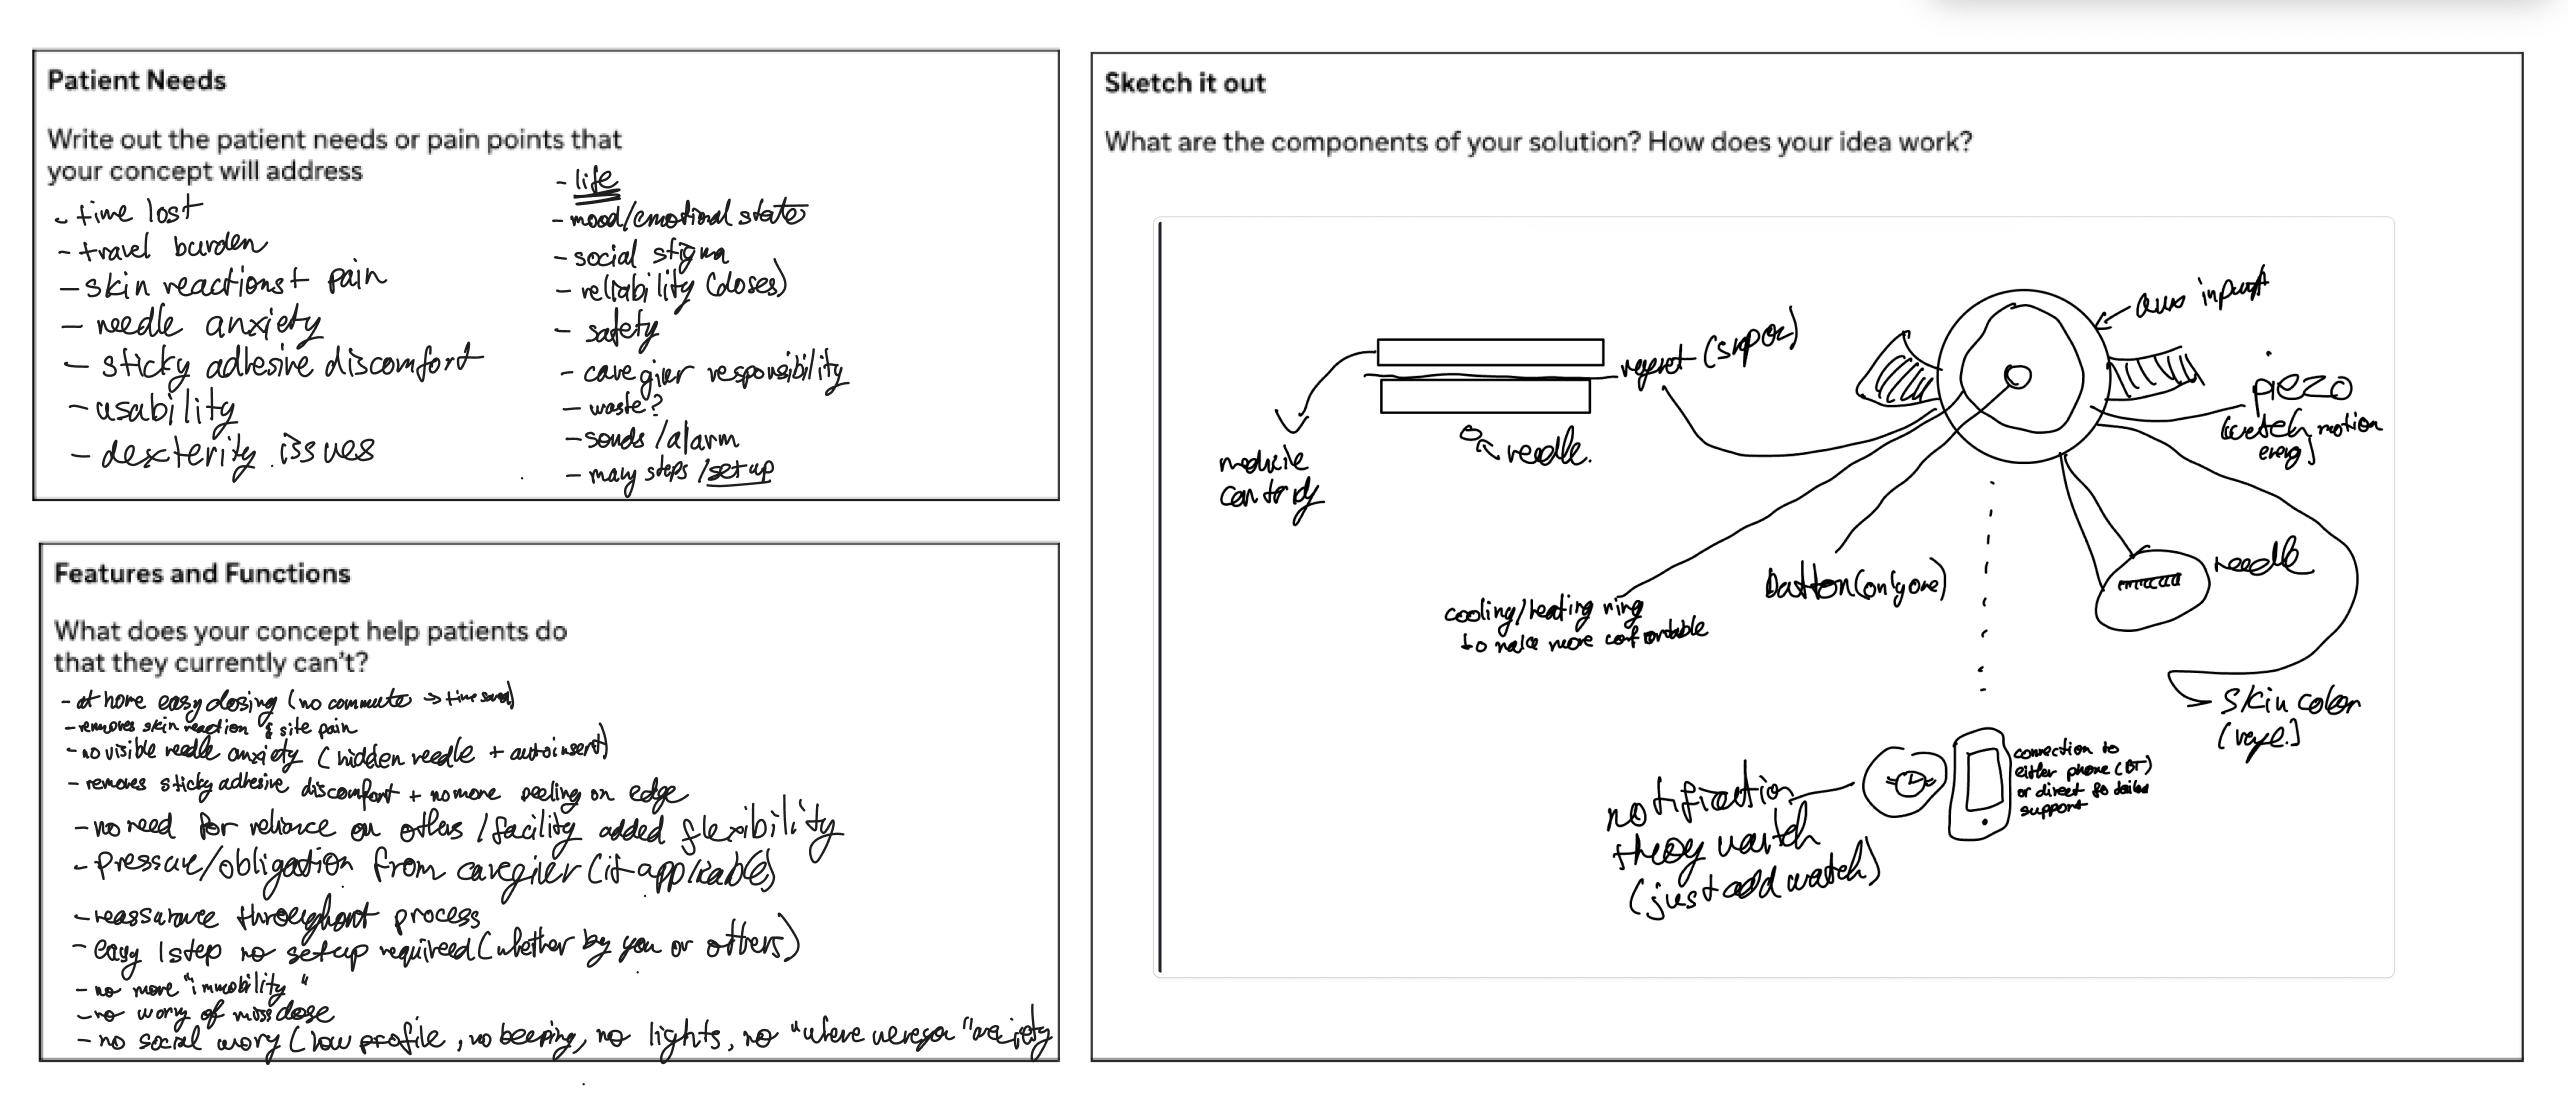 Patient Needs
Write out the patient needs or pain points that
your concept will address
- time lost
- travel burden
- skin reactions + pain
- needle anxiety
- sticky adhesive discomfort
- usability
- dexterity issues
- life
- mood/emotional state
- social stigma
- reliability (doses)
- safety
- caregier responsibility
- waste?
- sonds/alarm
- many steps/setup
Features and Functions
What does your concept help patients do
that they currently can't?
- at home easy dosing (no commute → time saved)
- removes skin reaction & site pain
- no visible needle anxiety (hidden needle + autoinsert)
- removes sticky adhesive discomfort + no more peeling on edge
- no need for reliance on others/facility added flexibility
- pressure/obligation from caregier (if applicable)
- reassurance throughout process
- easy 1 step no setup required (whether by you or others)
- no more "immobility"
- no worry of miss dose
- no social worry (low profile, no beeping, no lights, no "where were you" anxiety
Sketch it out
What are the components of your solution? How does your idea work?
needle.
cooling/heating ring
to make more comfortable
button (only one)
piezo
motion
needle
skin color
connection to
either phone (BT)
or direct
support
notification
(just add watch)